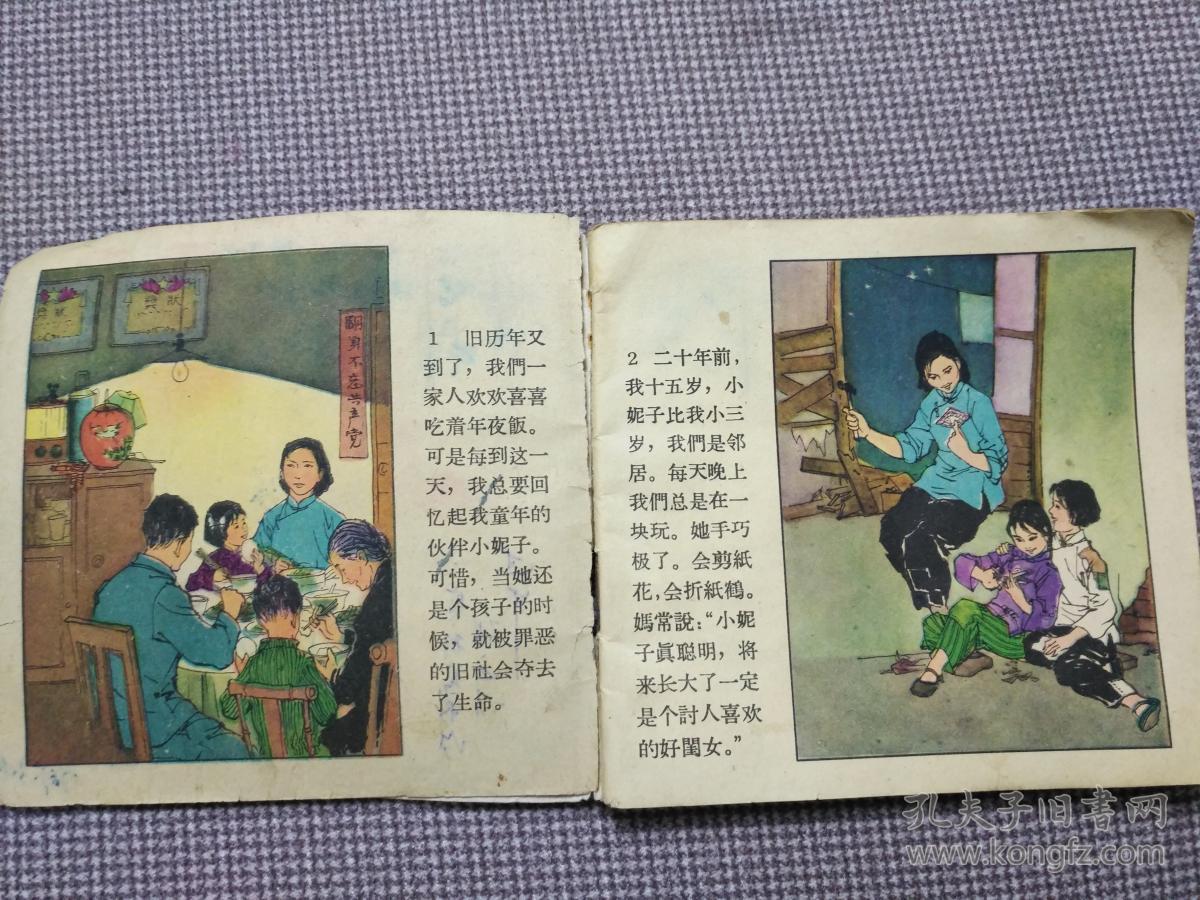 獎狀
獎狀
翻身不忘共产党
1 旧历年又
到了，我們一
家人欢欢喜喜
吃着年夜飯。
可是每到这一
天，我总要回
忆起我童年的
伙伴小妮子。
可惜，当她还
是个孩子的时
候，就被罪恶
的旧社会夺去
了生命。
2 二十年前，
我十五岁，小
妮子比我小三
岁，我們是邻
居。每天晚上
我們总是在一
块玩。她手巧
极了。会剪紙
花，会折紙鶴。
媽常說：“小妮
子眞聪明，将
来长大了一定
是个討人喜欢
的好閨女。”
孔夫子旧書网
www.kongfz.com